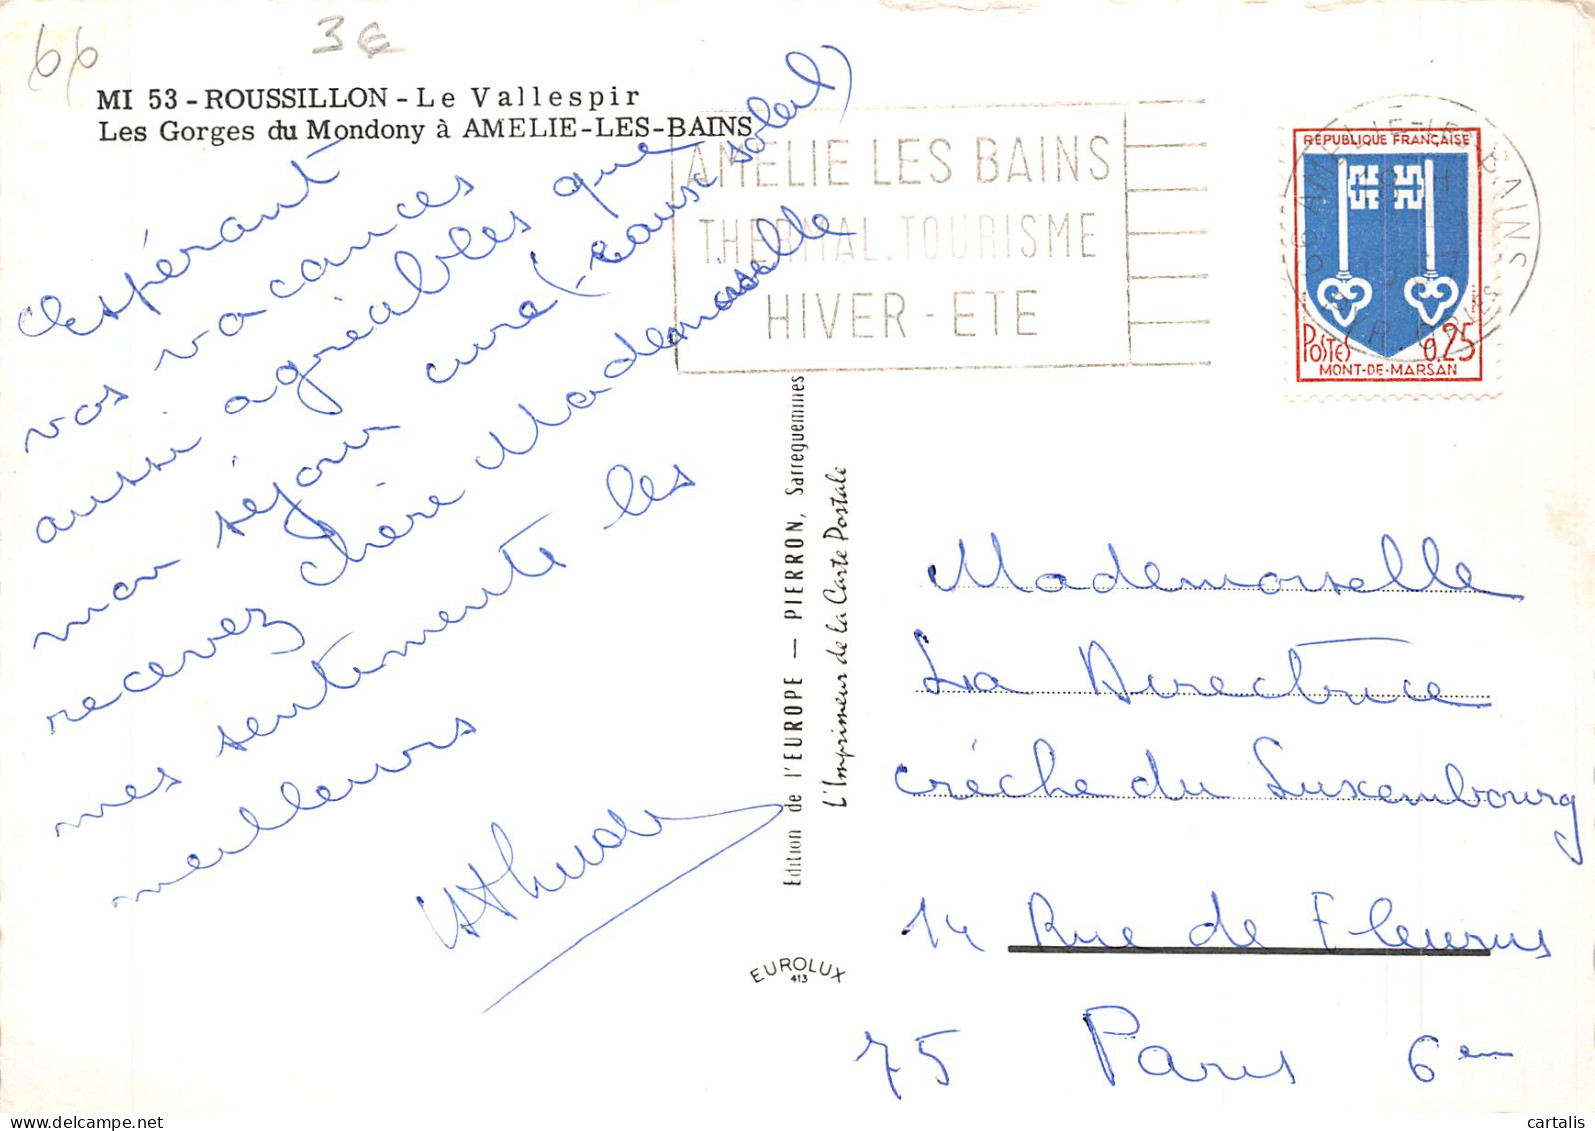 66
3€
MI 53 - ROUSSILLON - Le Vallespir
Les Gorges du Mondony à AMELIE-LES-BAINS
espérant
vos vacances
aussi agréables que
mon séjour cure (-sauf soleil)
recevez chère Mademoiselle
mes sentiments les
meilleurs
AMELIE LES BAINS
THERMAL.TOURISME
HIVER - ETE
66 AMELIE-LES-BAINS
REPUBLIQUE FRANÇAISE
POSTES 0,25
MONT-DE-MARSAN
Edition de l'EUROPE — PIERRON, Sarreguemines
L'Imprimeur de la Carte Postale
EUROLUX
413
Mademoiselle
La Directrice
crèche du Luxembourg
14 Rue de Fleurus
75 Paris 6em
cartalis